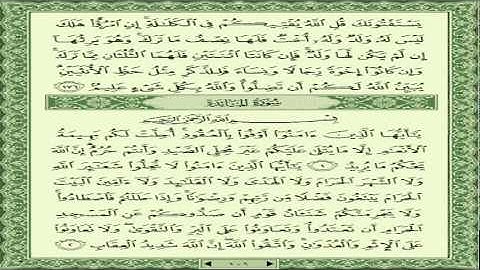 يَسْتَفْتُونَكَ قُلِ ٱللَّهُ يُفْتِيكُمْ فِى ٱلْكَلَـٰلَةِ إِنِ ٱمْرُؤٌا۟ هَلَكَ
لَيْسَ لَهُۥ وَلَدٌ وَلَهُۥٓ أُخْتٌ فَلَهَا نِصْفُ مَا تَرَكَ وَهُوَ يَرِثُهَآ
إِن لَّمْ يَكُن لَّهَا وَلَدٌ فَإِن كَانَتَا ٱثْنَتَيْنِ فَلَهُمَا ٱلثُّلُثَانِ مِمَّا تَرَكَ
وَإِن كَانُوٓا۟ إِخْوَةً رِّجَالًا وَنِسَآءً فَلِلذَّكَرِ مِثْلُ حَظِّ ٱلْأُنثَيَيْنِ
يُبَيِّنُ ٱللَّهُ لَكُمْ أَن تَضِلُّوا۟ وَٱللَّهُ بِكُلِّ شَىْءٍ عَلِيمٌ ١٧٦
سُورَةُ المَائِدَةِ
بِسْمِ ٱللَّهِ ٱلرَّحْمَـٰنِ ٱلرَّحِيمِ
يَـٰٓأَيُّهَا ٱلَّذِينَ ءَامَنُوٓا۟ أَوْفُوا۟ بِٱلْعُقُودِ أُحِلَّتْ لَكُم بَهِيمَةُ
ٱلْأَنْعَـٰمِ إِلَّا مَا يُتْلَىٰ عَلَيْكُمْ غَيْرَ مُحِلِّى ٱلصَّيْدِ وَأَنتُمْ حُرُمٌ إِنَّ ٱللَّهَ
يَحْكُمُ مَا يُرِيدُ ١ يَـٰٓأَيُّهَا ٱلَّذِينَ ءَامَنُوا۟ لَا تُحِلُّوا۟ شَعَـٰٓئِرَ ٱللَّهِ
وَلَا ٱلشَّهْرَ ٱلْحَرَامَ وَلَا ٱلْهَدْىَ وَلَا ٱلْقَلَـٰٓئِدَ وَلَآ ءَآمِّينَ ٱلْبَيْتَ
ٱلْحَرَامَ يَبْتَغُونَ فَضْلًا مِّن رَّبِّهِمْ وَرِضْوَٰنًا وَإِذَا حَلَلْتُمْ فَٱصْطَادُوا۟
وَلَا يَجْرِمَنَّكُمْ شَنَـَٔانُ قَوْمٍ أَن صَدُّوكُمْ عَنِ ٱلْمَسْجِدِ
ٱلْحَرَامِ أَن تَعْتَدُوا۟ وَتَعَاوَنُوا۟ عَلَى ٱلْبِرِّ وَٱلتَّقْوَىٰ وَلَا تَعَاوَنُوا۟
عَلَى ٱلْإِثْمِ وَٱلْعُدْوَٰنِ وَٱتَّقُوا۟ ٱللَّهَ إِنَّ ٱللَّهَ شَدِيدُ ٱلْعِقَابِ ٢
١٠٦